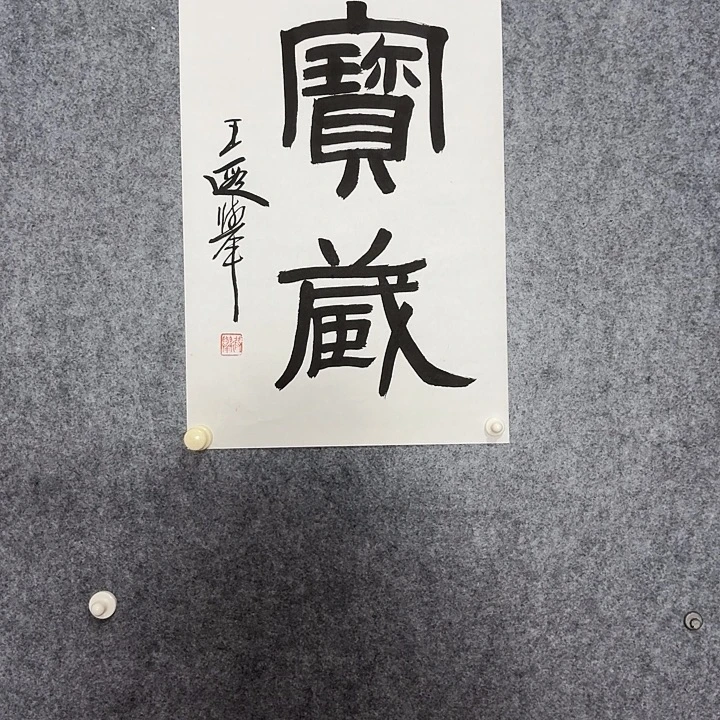 寶藏
王遐舉